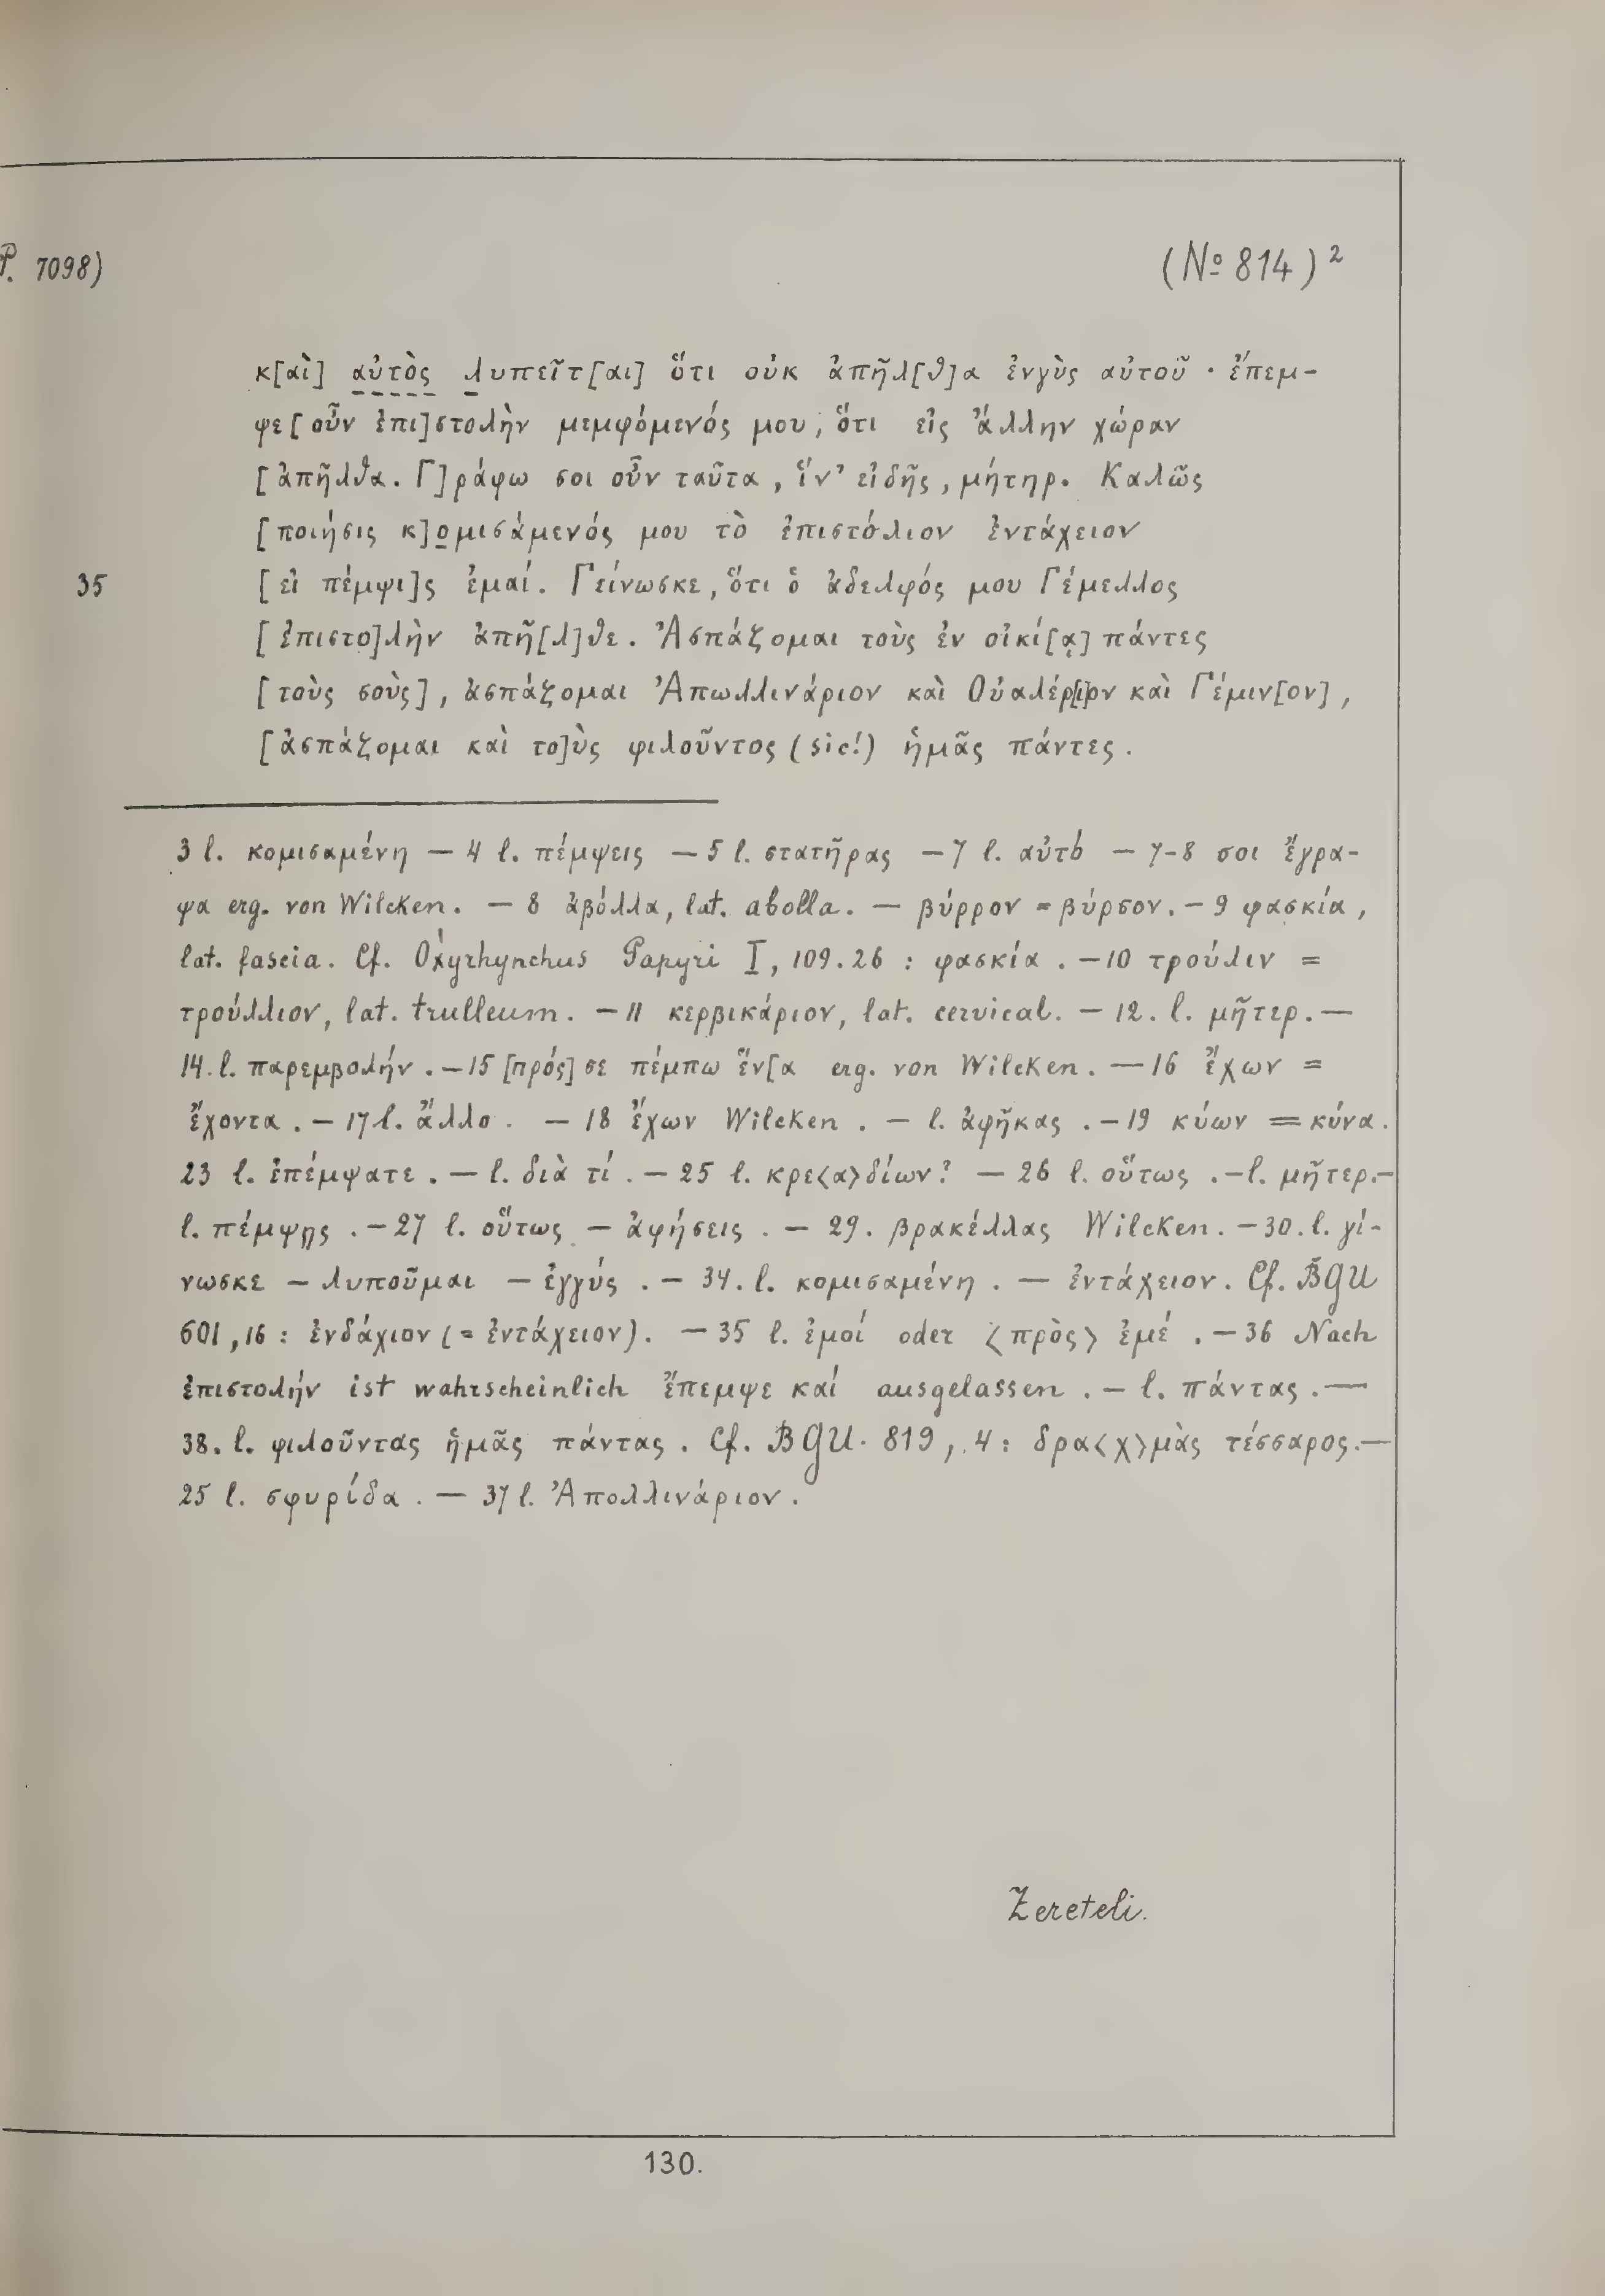 P. 7098)
(№ 814)²
κ[αὶ] αὐτὸς λυπεῖτ[αι] ὅτι οὐκ ἀπῆλ[θ]α ἐνγὺς αὐτοῦ · ἔπεμ-
ψε[οὖν ἐπι]στολὴν μεμφόμενός μου, ὅτι εἰς ἄλλην χώραν
[ἀπῆλθα. Γ]ράφω σοι οὖν ταῦτα, ἵν' εἰδῇς, μήτηρ. Καλῶς
[ποιήσις κ]ομισάμενός μου τὸ ἐπιστόλιον ἐντάχειον
35 [εἰ πέμψι]ς ἐμαί. Γείνωσκε, ὅτι ὁ ἀδελφός μου Γέμελλος
[ἐπιστο]λὴν ἀπῆ[λ]θε. Ἀσπάζομαι τοὺς ἐν οἰκί[ᾳ] πάντες
[τοὺς σοὺς], ἀσπάζομαι Ἀπωλλινάριον καὶ Οὐαλέρ[ι]ον καὶ Γέμιν[ον],
[ἀσπάζομαι καὶ το]ὺς φιλοῦντος (sic!) ἡμᾶς πάντες.
3 l. κομισαμένη — 4 l. πέμψεις — 5 l. στατῆρας — 7 l. αὐτό — 7-8 σοι ἔγρα-
ψα erg. von Wilcken. — 8 ἀβόλλα, lat. abolla. — βύρρον = βύρσον. — 9 φασκία,
lat. fascia. Cf. Oxyrhynchus Papyri I, 109.26 : φασκία. — 10 τρούλιν =
τρούλλιον, lat. trulleum. — 11 κερβικάριον, lat. cervical. — 12. l. μῆτερ. —
14. l. παρεμβολήν. — 15 [πρός] σε πέμπω ἕν[α erg. von Wilcken. — 16 ἔχων =
ἔχοντα. — 17 l. ἄλλο. — 18 ἔχων Wilcken. — l. ἀφῆκας. — 19 κύων = κύνα.
23 l. ἐπέμψατε. — l. διὰ τί. — 25 l. κρε<α>δίων? — 26 l. οὕτως. — l. μῆτερ. —
l. πέμψῃς. — 27 l. οὕτως — ἀφήσεις. — 29. βρακέλλας Wilcken. — 30. l. γί-
νωσκε — λυποῦμαι — ἐγγύς. — 34. l. κομισαμένη. — ἐντάχειον. Cf. BGU
601,16 : ἐνδάχιον (= ἐντάχειον). — 35 l. ἐμοί oder <πρὸς> ἐμέ. — 36 Nach
ἐπιστολήν ist wahrscheinlich ἔπεμψε καί ausgelassen. — l. πάντας. —
38. l. φιλοῦντας ἡμᾶς πάντας. Cf. BGU. 819, 4: δρα<χ>μὰς τέσσαρος. —
25 l. σφυρίδα. — 37 l. Ἀπολλινάριον.
Zereteli.
130.